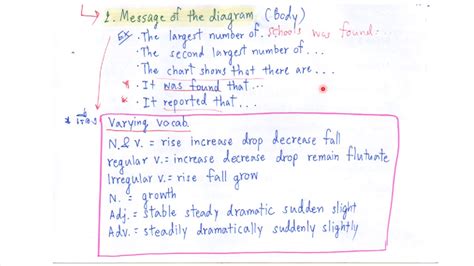 2. Message of the diagram (Body)
Ex • The largest number of schools was found...
• The second largest number of...
• The chart shows that there are...
* • It was found that...
* • It reported that...
Varying vocab
N. & V. = rise increase drop decrease fall
regular v. = increase decrease drop remain flutuate
Irregular v. = rise fall grow
N. = growth
Adj. = stable steady dramatic sudden slight
Adv. = steadily dramatically suddenly slightly